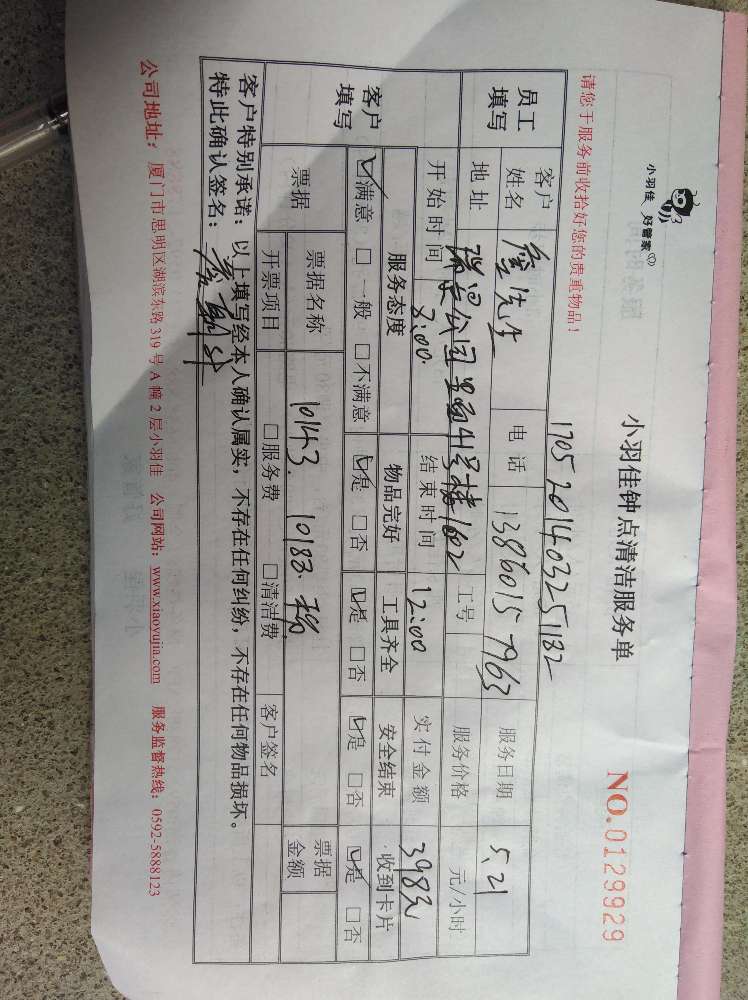 小羽佳 好管家
小羽佳钟点清洁服务单
NO.0129929
请您于服务前收拾好您的贵重物品!
1705201403251182
员工填写 客户姓名 先生 电话 13860157963 服务日期 5.21
地址 公园 41号楼1602 工号 服务价格 元/小时
开始时间 8:00. 结束时间 12:00 实付金额 398元
客户填写 服务态度 物品完好 工具齐全 安全结束 收到卡片
☑满意 □一般 □不满意 ☑是 □否 ☑是 □否 ☑是 □否 ☑是 □否
票据 票据名称 10143. 10183. 票据金额
开票项目 □服务费 □清洁费 客户签名
客户特别承诺:以上填写经本人确认属实,不存在任何纠纷,不存在任何物品损坏。
特此确认签名:
公司地址:厦门市思明区湖滨东路 319 号 A 幢 2 层小羽佳 公司网站:www.xiaoyujia.com 服务监督热线:0592-5888123